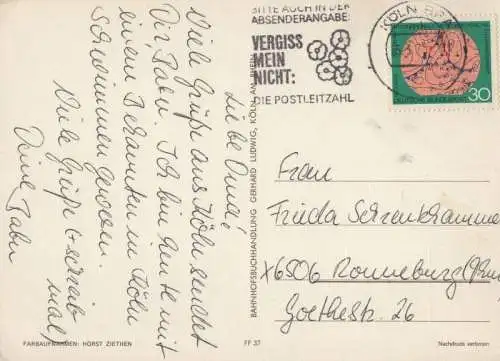 Liebe Omi!
Viele Grüße aus Köln sendet
Dir, Gabu. Ich bin heute mit
einem Bekannten in Köln
schwimmen gewesen.
Viele Grüße + schreib
mal,
Deine Gabu
BITTE AUCH IN DER
ABSENDERANGABE:
VERGISS
MEIN
NICHT:
DIE POSTLEITZAHL
KÖLN
DEUTSCHE BUNDESPOST
30
Frau
Frieda Schrenkhammer
X6506 Ronneburg
Goethestr. 26
BAHNHOFSBUCHHANDLUNG GERHARD LUDWIG, KÖLN AM RHEIN
FARBAUFNAHMEN: HORST ZIETHEN
FF 37
Nachdruck verboten